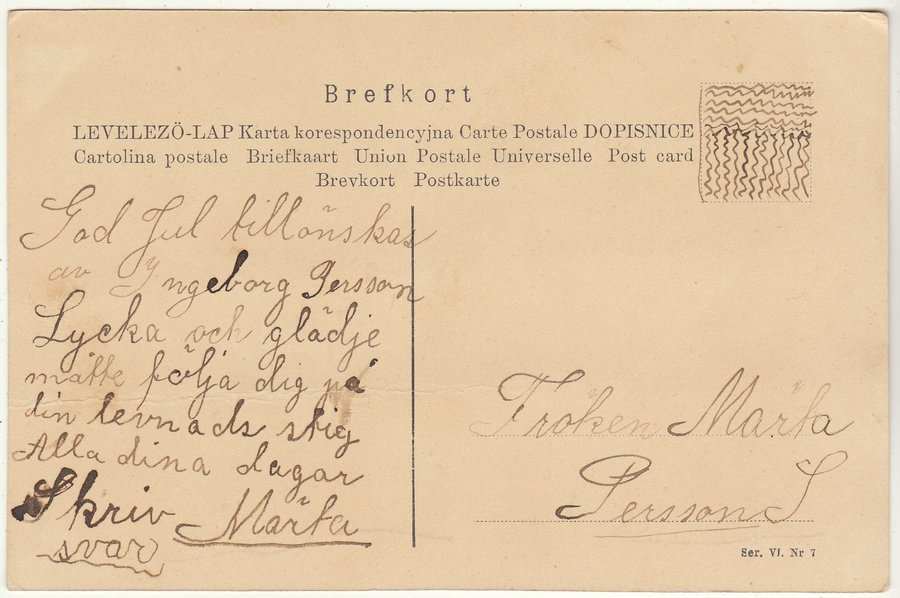 Brefkort
LEVELEZÖ-LAP Karta korespondencyjna Carte Postale DOPISNICE
Cartolina postale Briefkaart Union Postale Universelle Post card
Brevkort Postkarte
God Jul tillönskas
av Ingeborg Persson
Lycka och glädje
måtte följa dig på
din levnads stig
Alla dina dagar
Skriv Märta
svar
Fröken Märta
Persson S
Ser. VI. Nr 7